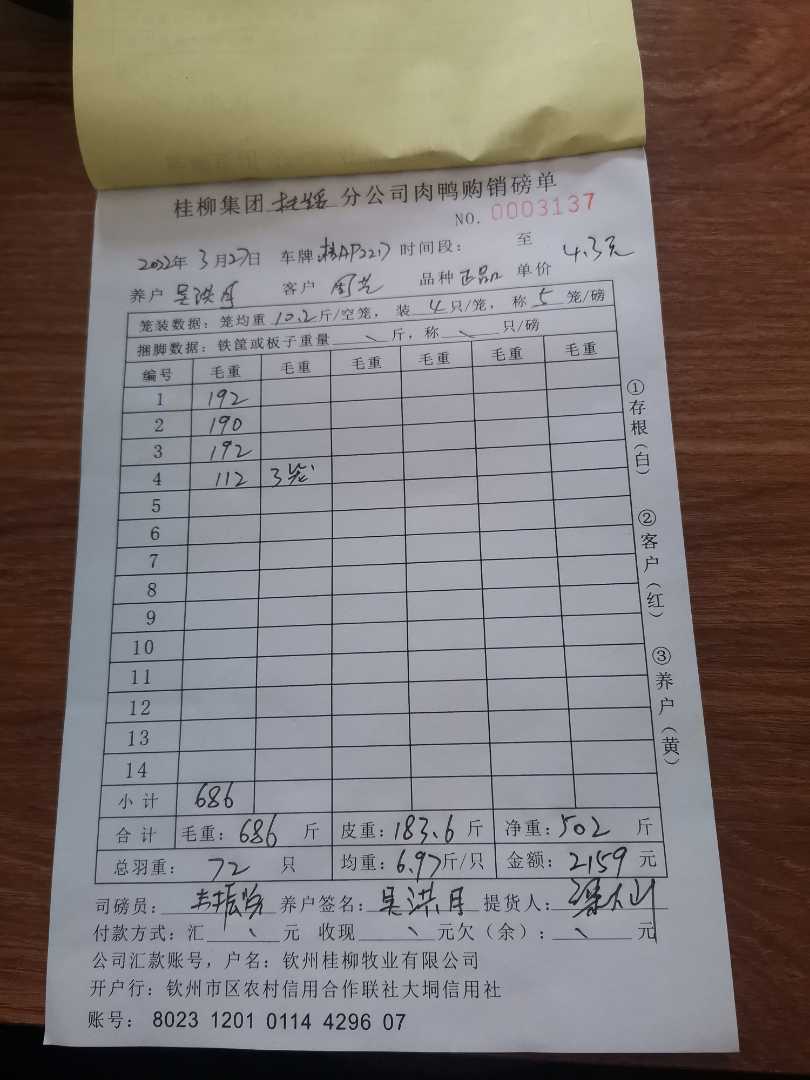 桂柳集团扶绥分公司肉鸭购销磅单
NO. 0003137
2022年 3月27日 车牌 桂AP2217 时间段： 至
养户 吴洪月 客户 品种 正品 单价 4.3元
笼装数据：笼均重 10.2 斤/空笼，装 4 只/笼，称 5 笼/磅
捆脚数据：铁筐或板子重量 \ 斤，称 \ 只/磅
编号 毛重 毛重 毛重 毛重 毛重 毛重
1 192
2 190
3 192
4 112 3笼
5
6
7
8
9
10
11
12
13
14
小计 686
合计 毛重：686 斤 皮重：183.6 斤 净重：502 斤
总羽重： 72 只 均重：6.97斤/只 金额：2159 元
司磅员： 养户签名：吴洪月 提货人：
付款方式：汇 \ 元 收现 \ 元欠（余）：\ 元
公司汇款账号，户名：钦州桂柳牧业有限公司
开户行：钦州市区农村信用合作联社大垌信用社
账号： 8023 1201 0114 4296 07
①存根（白）
②客户（红）
③养户（黄）